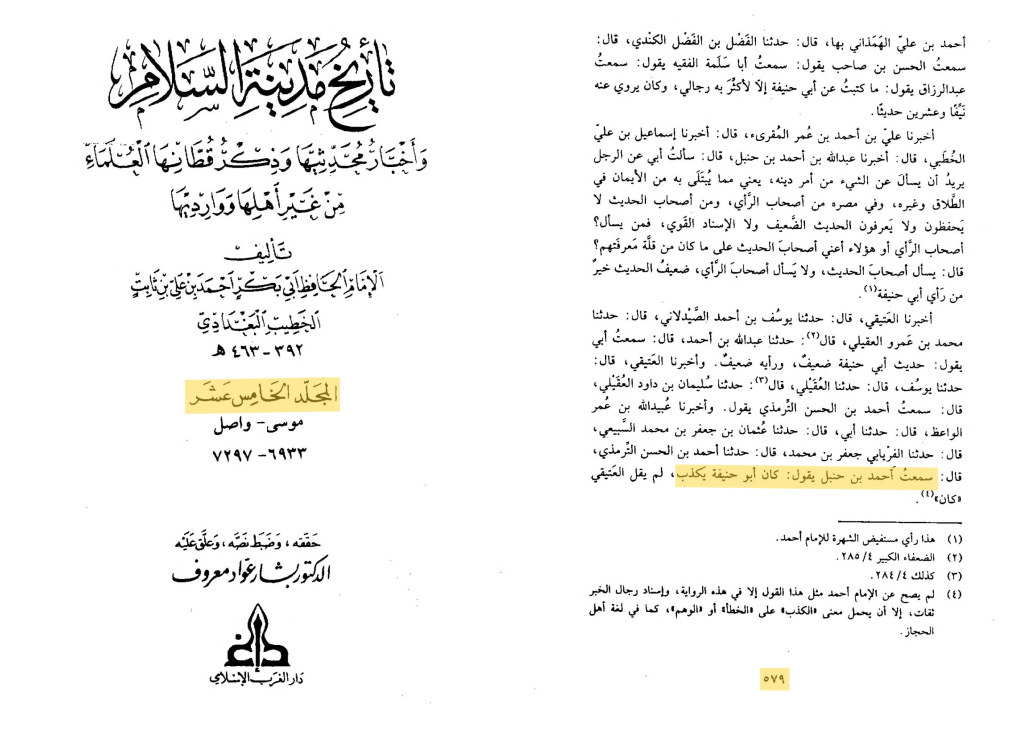 تاريخ مدينة السلام
وَأَخْبَارُ مُحَدِّثِيهَا وَذِكْرُ قُطَّانِهَا الْعُلَمَاءِ
مِنْ غَيْرِ أَهْلِهَا وَوَارِدِيهَا
تأليف
الإمام الحافظ أبي بكر أحمد بن علي بن ثابت
الخطيب البغدادي
٣٩٢ - ٤٦٣ هـ
المجلد الخامس عشر
موسى - واصل
٦٩٣٣ - ٧٢٩٧
حققه، وضبط نصه، وعلق عليه
الدكتور بشار عواد معروف
دار الغرب الإسلامي
أحمد بن عليّ الهَمَذاني بها، قال: حدثنا الفَضْل بن الفَضْل الكندي، قال:
سمعتُ الحسن بن صاحب يقول: سمعتُ أبا سَلَمة الفقيه يقول: سمعتُ
عبدالرزاق يقول: ما كتبتُ عن أبي حنيفة إلاّ لأكثُرَ به رجالي، وكان يروي عنه
نَيِّفًا وعشرين حديثًا.
أخبرنا عليّ بن أحمد بن عُمر المقرىء، قال: أخبرنا إسماعيل بن عليّ
الخُطَبي، قال: أخبرنا عبدالله بن أحمد بن حنبل، قال: سألتُ أبي عن الرجل
يريدُ أن يسألَ عن الشيء من أمر دينه، يعني مما يُبتَلَى به من الأيمان في
الطَّلاق وغيره، وفي مصره من أصحاب الرَّأي، ومن أصحاب الحديث لا
يَحفظون ولا يَعرفون الحديث الضَّعيف ولا الإسناد القَوي، فمن يسأل؟
أصحاب الرَّأي أو هؤلاء أعني أصحابَ الحديث على ما كان من قلَّة مَعرفَتهم؟
قال: يسأل أصحابَ الحديث، ولا يَسأل أصحابَ الرَّأي، ضَعيفُ الحديث خيرٌ
من رَأي أبي حنيفة(١).
أخبرنا العَتيقي، قال: حدثنا يوسُف بن أحمد الصَّيْدلاني، قال: حدثنا
محمد بن عَمرو العقيلي، قال(٢): حدثنا عبدالله بن أحمد، قال: سمعتُ أبي
يقول: حديث أبي حنيفة ضعيفٌ، ورأيه ضعيفٌ. وأخبرنا العَتيقي، قال:
حدثنا يوسُف، قال: حدثنا العُقَيْلي، قال(٣): حدثنا سُليمان بن داود العُقَيْلي،
قال: سمعتُ أحمد بن الحسن التِّرمذي يقول. وأخبرنا عُبيدالله بن عُمر
الواعظ، قال: حدثنا أبي، قال: حدثنا عُثمان بن جعفر بن محمد السَّبيعي،
قال: حدثنا الفِرْيابي جعفر بن محمد، قال: حدثنا أحمد بن الحسن التِّرمذي،
قال: سمعتُ أحمد بن حنبل يقول: كان أبو حنيفة يَكذب، لم يقل العَتيقي
«كان»(٤).
(١) هذا رأي مستفيض الشهرة للإمام أحمد.
(٢) الضعفاء الكبير ٤/ ٢٨٥.
(٣) كذلك ٤/ ٢٨٤.
(٤) لم يصح عن الإمام أحمد مثل هذا القول إلا في هذه الرواية، وإسناد رجال الخبر
ثقات، إلا أن يحمل معنى «الكذب» على «الخطأ» أو «الوهم»، كما في لغة أهل
الحجاز.
٥٧٩